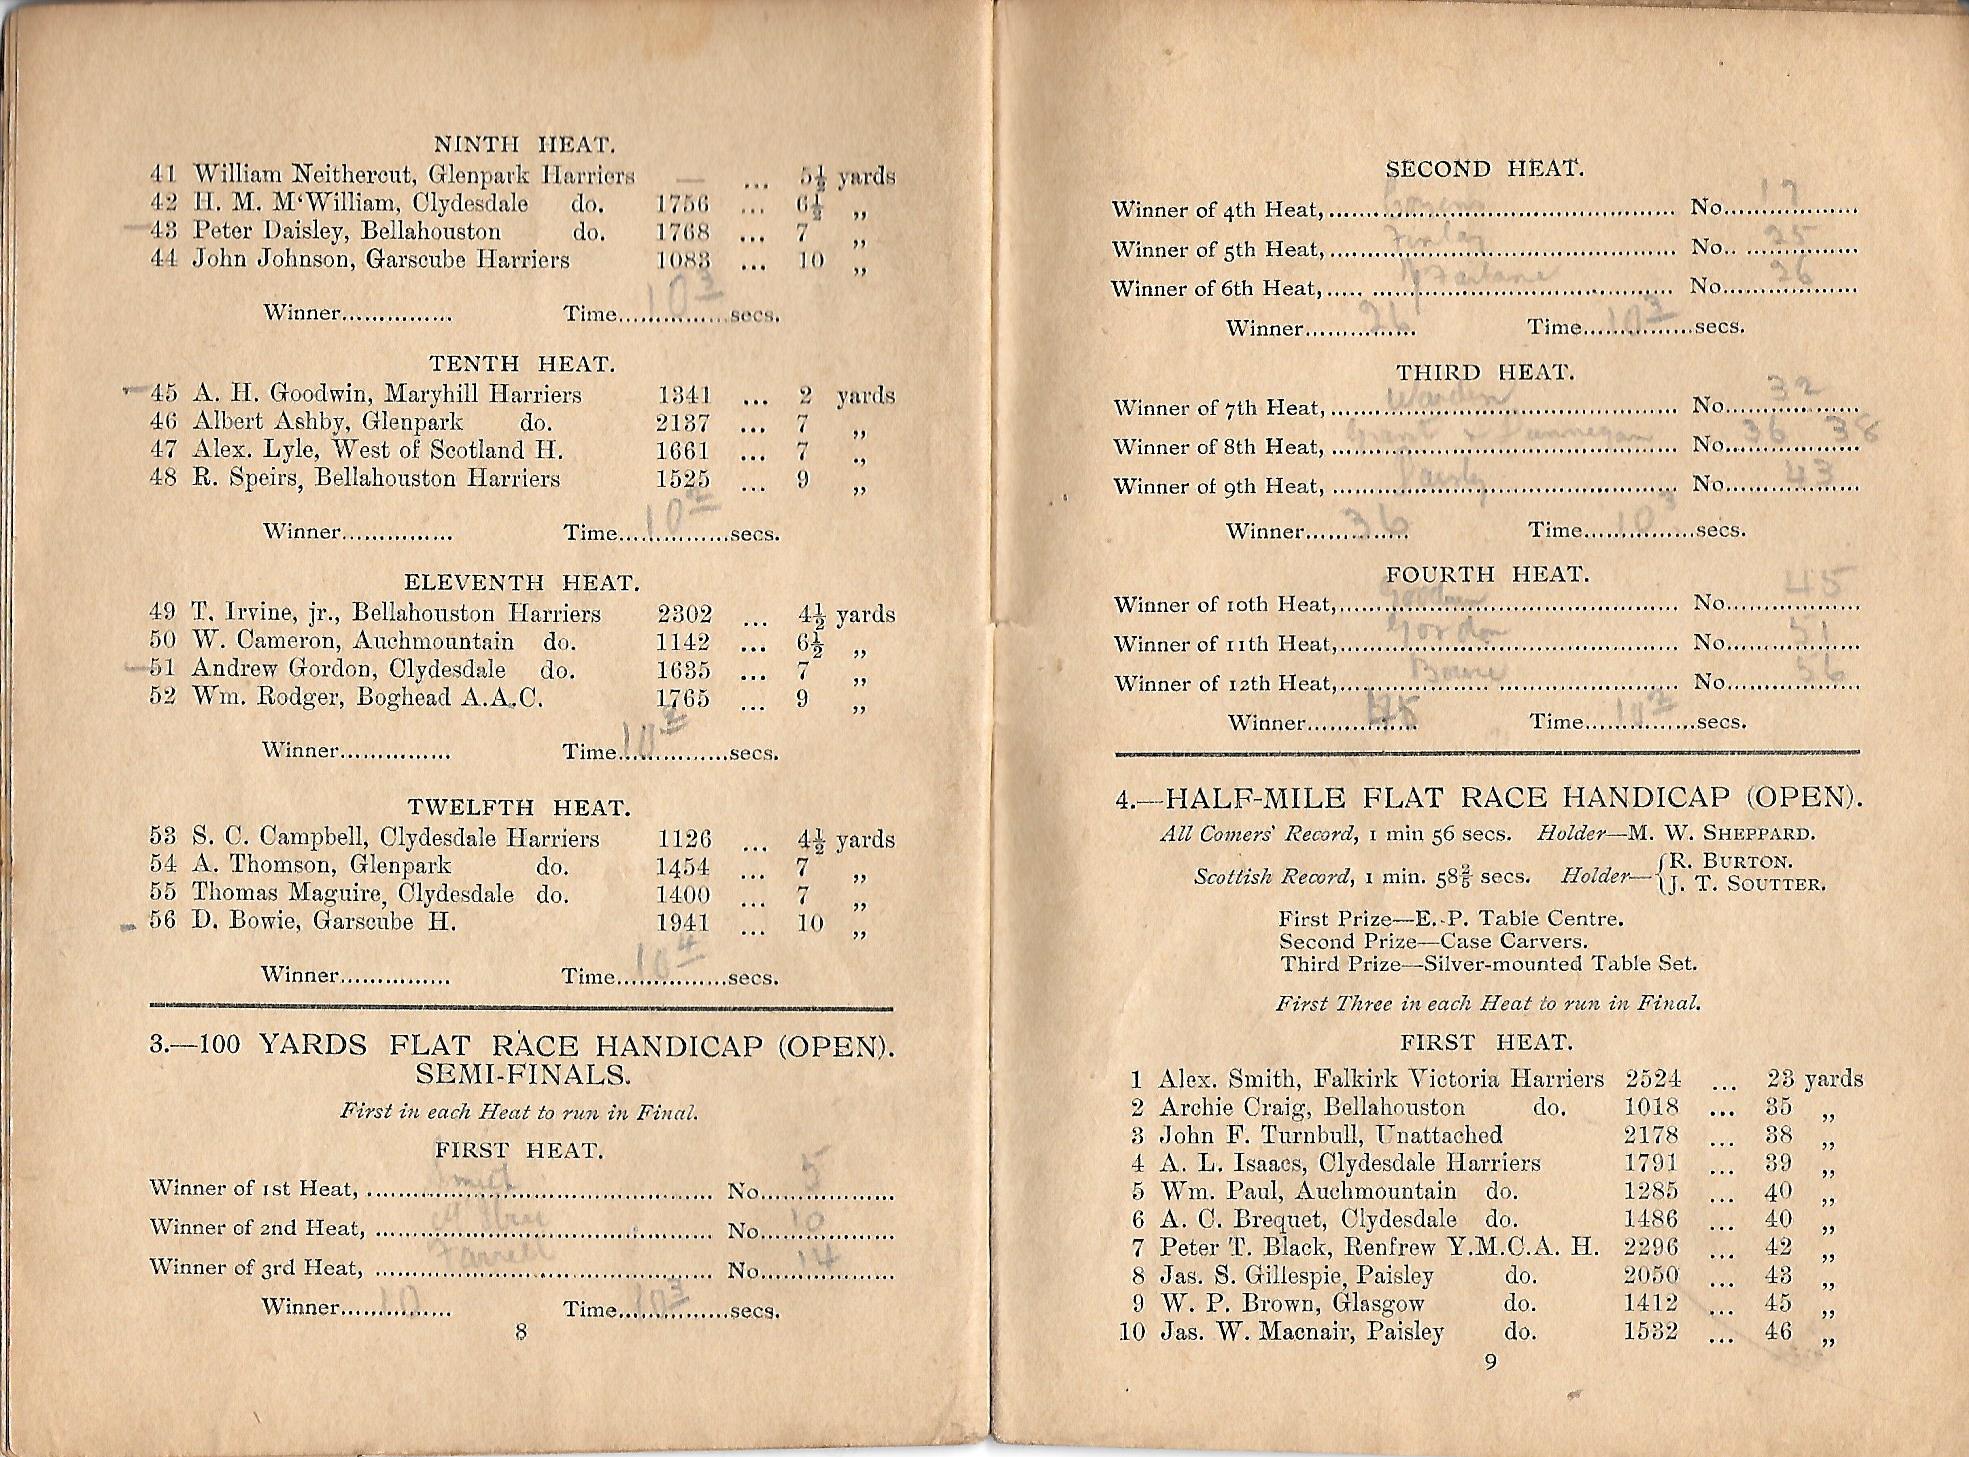 NINTH HEAT.
41 William Neithercut, Glenpark Harriers — ... 5½ yards
42 H. M. M‘William, Clydesdale do. 1756 ... 6½ „
43 Peter Daisley, Bellahouston do. 1768 ... 7 „
44 John Johnson, Garscube Harriers 1083 ... 10 „
Winner............... Time 10 3 secs.
TENTH HEAT.
45 A. H. Goodwin, Maryhill Harriers 1341 ... 2 yards
46 Albert Ashby, Glenpark do. 2137 ... 7 „
47 Alex. Lyle, West of Scotland H. 1661 ... 7 „
48 R. Speirs, Bellahouston Harriers 1525 ... 9 „
Winner............... Time 10 secs.
ELEVENTH HEAT.
49 T. Irvine, jr., Bellahouston Harriers 2302 ... 4½ yards
50 W. Cameron, Auchmountain do. 1142 ... 6½ „
51 Andrew Gordon, Clydesdale do. 1635 ... 7 „
52 Wm. Rodger, Boghead A.A.C. 1765 ... 9 „
Winner............... Time 10 secs.
TWELFTH HEAT.
53 S. C. Campbell, Clydesdale Harriers 1126 ... 4½ yards
54 A. Thomson, Glenpark do. 1454 ... 7 „
55 Thomas Maguire, Clydesdale do. 1400 ... 7 „
56 D. Bowie, Garscube H. 1941 ... 10 „
Winner............... Time 10 4 secs.
3.—100 YARDS FLAT RACE HANDICAP (OPEN).
SEMI-FINALS.
First in each Heat to run in Final.
FIRST HEAT.
Winner of 1st Heat, Smith No. 5
Winner of 2nd Heat, No. 10
Winner of 3rd Heat, Farrell No. 14
Winner 10 Time 10 3 secs.
8
SECOND HEAT.
Winner of 4th Heat, No. 17
Winner of 5th Heat, Finlay No. 25
Winner of 6th Heat, McFarlane No. 26
Winner 26 Time 10 3 secs.
THIRD HEAT.
Winner of 7th Heat, Warden No. 32
Winner of 8th Heat, Grant & Dunnegan No. 36 38
Winner of 9th Heat, Daisley No. 43
Winner 36 Time 10 3 secs.
FOURTH HEAT.
Winner of 10th Heat, Goodwin No. 45
Winner of 11th Heat, Gordon No. 51
Winner of 12th Heat, Bowie No. 56
Winner 45 Time 10 secs.
4.—HALF-MILE FLAT RACE HANDICAP (OPEN).
All Comers' Record, 1 min 56 secs. Holder—M. W. SHEPPARD.
Scottish Record, 1 min. 58⅖ secs. Holder—{R. BURTON.
J. T. SOUTTER.
First Prize—E.-P. Table Centre.
Second Prize—Case Carvers.
Third Prize—Silver-mounted Table Set.
First Three in each Heat to run in Final.
FIRST HEAT.
1 Alex. Smith, Falkirk Victoria Harriers 2524 ... 23 yards
2 Archie Craig, Bellahouston do. 1018 ... 35 „
3 John F. Turnbull, Unattached 2178 ... 38 „
4 A. L. Isaacs, Clydesdale Harriers 1791 ... 39 „
5 Wm. Paul, Auchmountain do. 1285 ... 40 „
6 A. C. Brequet, Clydesdale do. 1486 ... 40 „
7 Peter T. Black, Renfrew Y.M.C.A. H. 2296 ... 42 „
8 Jas. S. Gillespie, Paisley do. 2050 ... 43 „
9 W. P. Brown, Glasgow do. 1412 ... 45 „
10 Jas. W. Macnair, Paisley do. 1532 ... 46 „
9